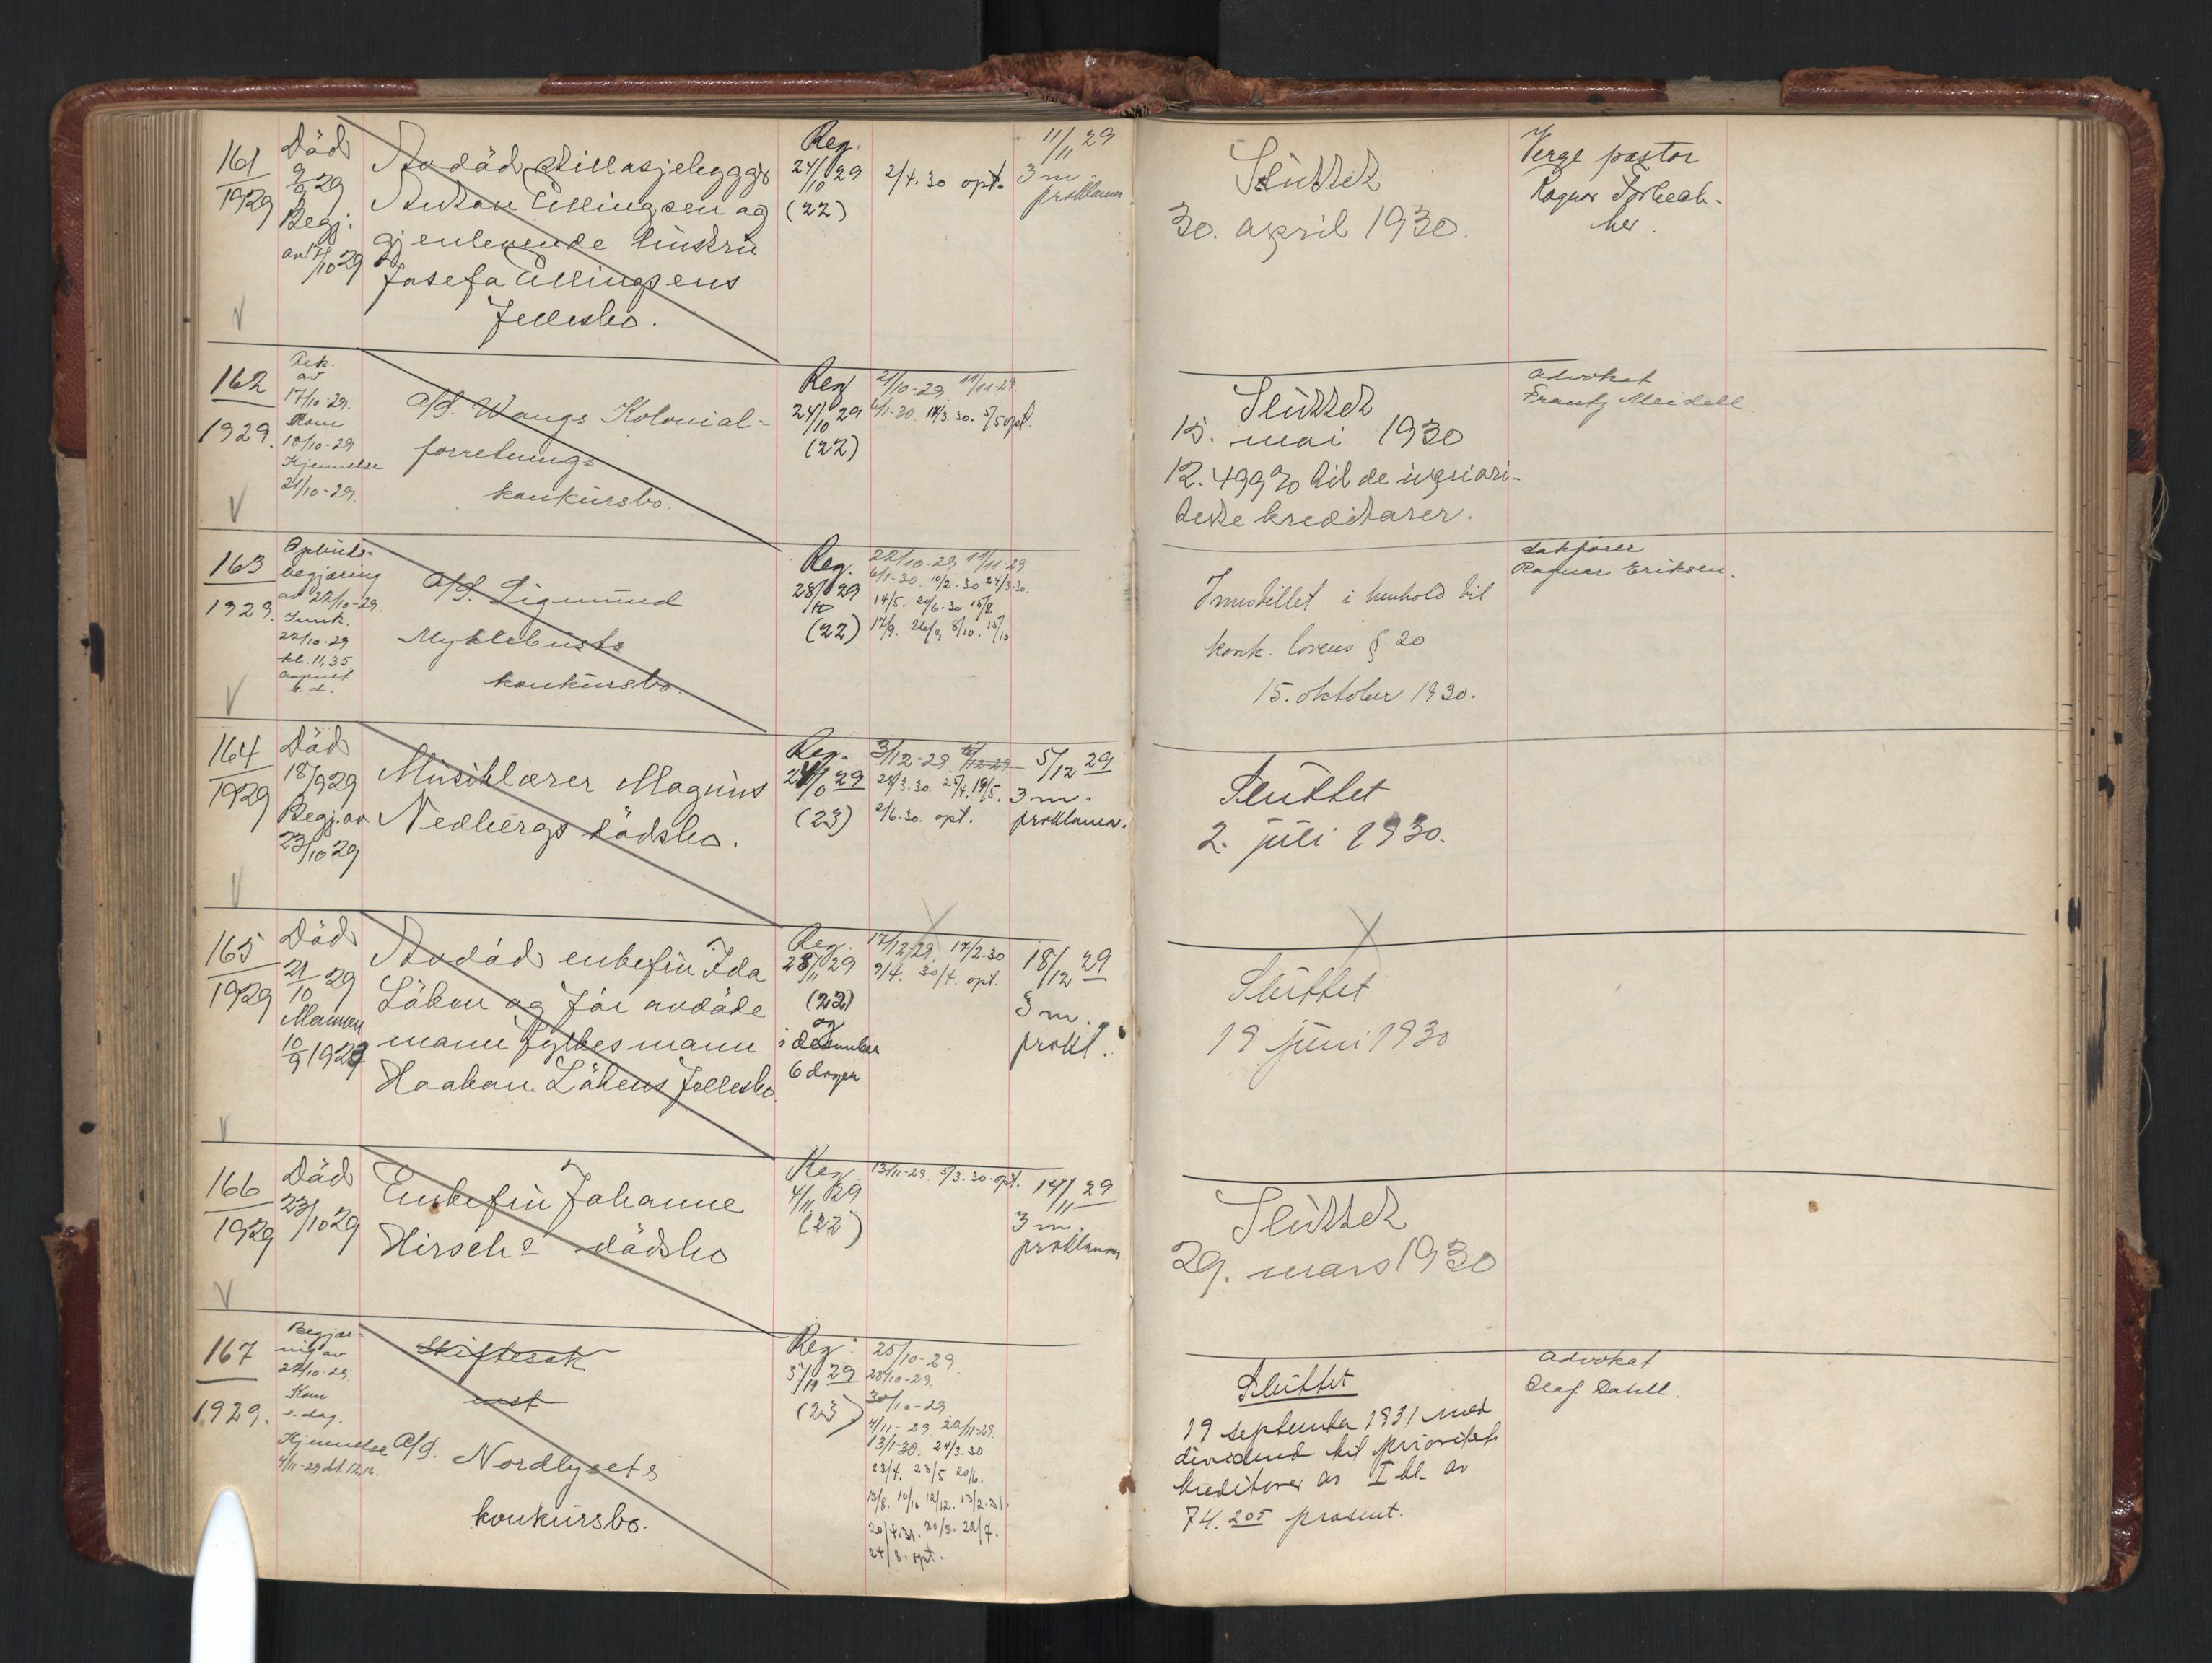 161
1929
Död
9/9 29
Begj.
av 17/10 29
Avdöd stillasjebygger
Anton Ellingsen og
gjenlevende hustru
Josefa Ellingsens
fellesbo.
Reg.
24/10 29
(22)
2/4. 30 opt.
11/11 29
3 m.
proklama.
Sluttet
30. april 1930.
Verge pastor
Ragnar
162
1929.
Rek.
av
17/10-29.
Kom
18/10-29
Kjennelse
21/10-29.
A/S. Wangs Kolonial-
forretnings
konkursbo.
Reg
24/10 29
(22)
21/10-29, 11/11-29
6/1-30. 14/3. 30. 5/5 opt.
Sluttet
15. mai 1930
12.499 % til de upriori-
terte kreditorer.
Advokat
Frantz Meidell
163
1929.
Opbuds-
begjæring
av 22/10-29.
Innk.
22/10-29
kl. 11,35
s. d.
A/S. Sigmund
Myklebusts
konkursbo.
Reg.
28/10 29
(22)
22/10-29, 11/11-29
6/1-30. 10/2-30 24/3-30.
14/5. 20/6-30 15/8.
17/9. 26/9 8/10. 15/10
Innstillet i henhold til
konk. lovens § 20
15. oktober 1930.
Sakfører
Ragnar Eriksen.
164
1929
Död
18/9 29
Begj. av
23/10 29
Musiklærer Magnus
Nedbergs dödsbo.
Reg.
29
(23)
3/12-29
24/3.30. 25/4. 19/5.
2/6.30. opt.
5/12 29
3 m.
proklama.
Sluttet
2. juli 1930.
165
1929
Död
21/10 29
Mannen
10/9 1923
Avdöd enkefru Ida
Löken og för avdöde
mann fylkesmann
Haakon Lökens fellesbo.
Reg.
28/11 29
(22)
og
i desember
6 dager
17/12-29. 17/2.30
9/4. 30/4. opt.
18/12 29
3 m.
prokl.
Sluttet
19 juni 1930
166
1929
Död
23/10 29
Enkefru Johanne
Hirschs dödsbo
Reg.
4/11 29
(22)
13/11-29 5/3.30. opt.
14/11 29
3 m.
proklama
Sluttet
29. mars 1930
167
1929.
Begjæ-
ring av
24/10-29.
Kom
s. dag.
Kjennelse
4/11-29 kl. 12,16.
Skiftesak
A/S. Nordlysets
konkursbo.
Reg.
5/11 29
(23)
25/10-29.
28/10-29.
30/10-29
4/11-29. 22/11-29.
13/1-30. 24/3.30
23/4. 23/5 20/6.
13/8. 10/10 12/12. 13/2-31.
20/4.31. 20/5. 22/7.
24/8. opt.
Sluttet
19 september 1931 med
dividend til prioritets
kreditorer av I kl. av
74.205 prosent.
Advokat
Olaf Dahll.